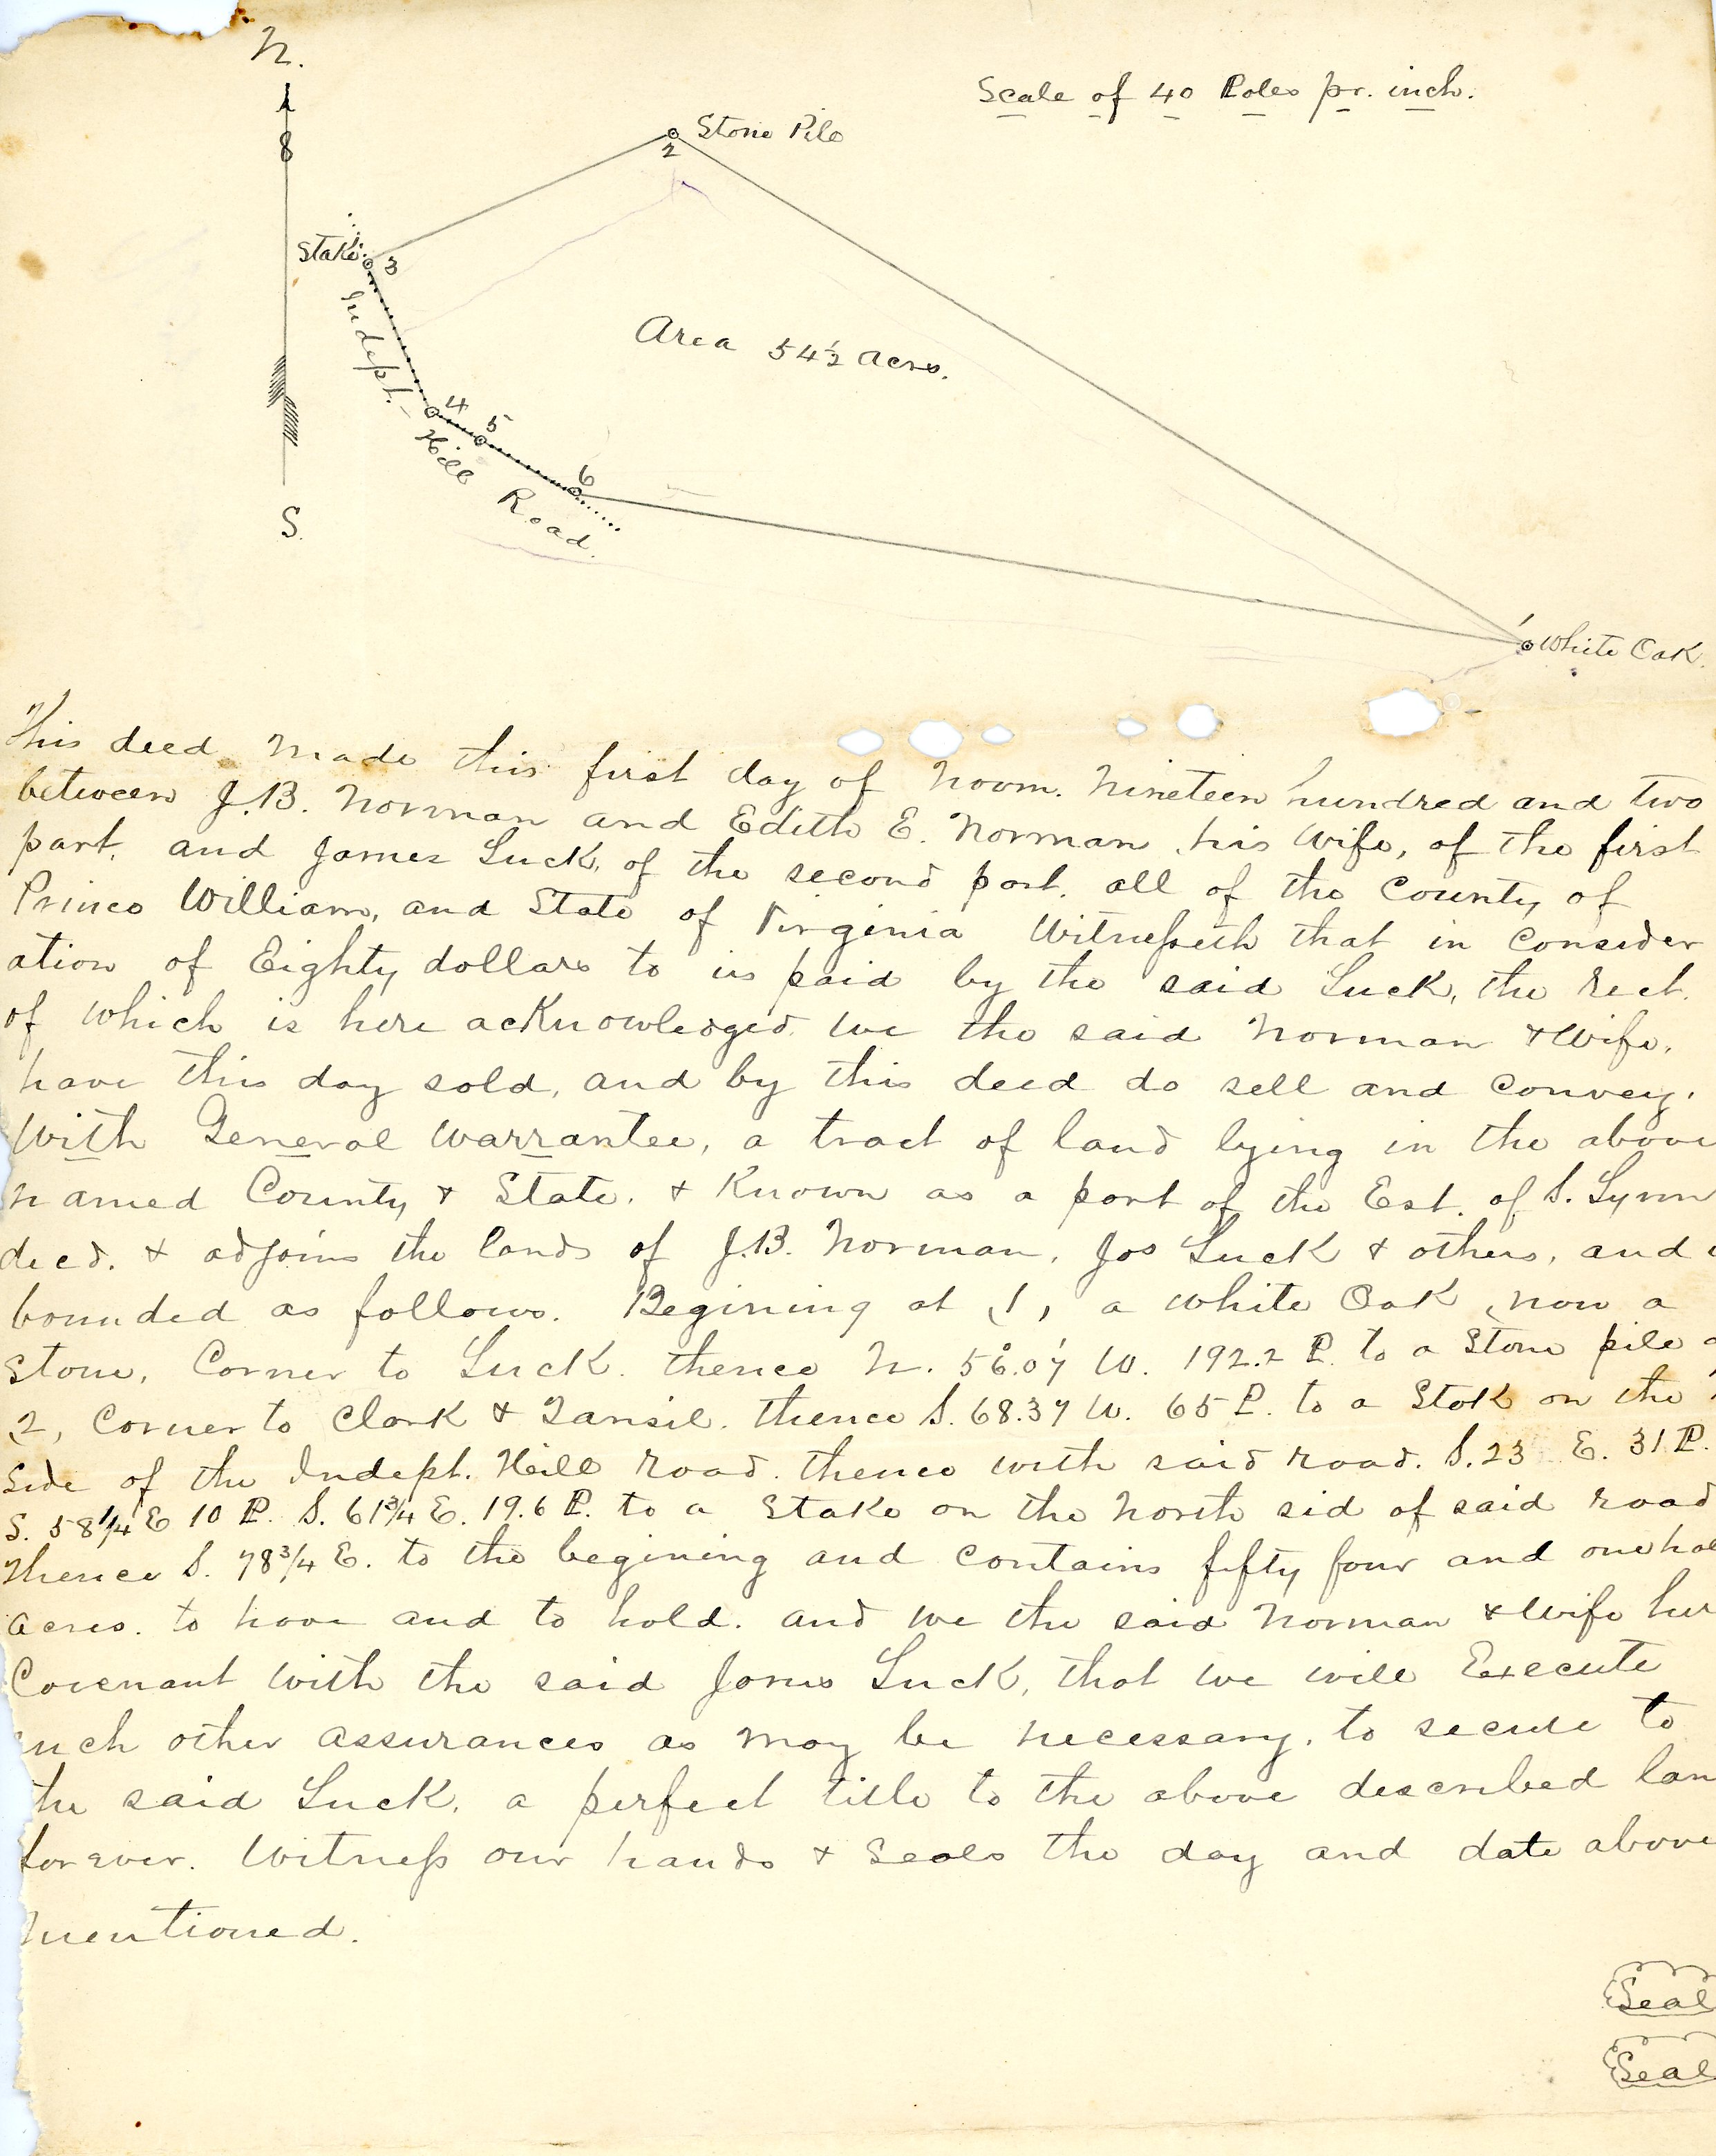 N.
Scale of 40 Poles pr. inch.
8
Stone Pile
2
Stake
3
Indept. Hill Road.
Area 54½ Acres.
4
5
6
S.
1
White Oak.
This deed made this first day of Novm. Nineteen hundred and two
between J.B. Norman and Edith E. Norman his wife, of the first
part, and James Luck, of the second part. all of the County of
Prince William, and State of Virginia Witnesseth that in Consider
ation of Eighty dollars to us paid by the said Luck, the Rect.
of which is here acknowledged we the said Norman & Wife,
have this day sold, and by this deed do sell and convey.
With General Warrantee, a tract of land lying in the above
named County & State. & Known as a part of the Est. of S. Lynn
decd. & adjoins the lands of J.B. Norman, Jos Luck & others, and
bounded as follows. Begining at (1, a White Oak, now a
Stone, Corner to Luck. thence N. 56°.07' W. 192.2 P. to a Stone pile
2, Corner to Clark & Tansil. thence S. 68.37 W. 65 P. to a Stak on the
Side of the Indept. Hill road. thence with said road. S. 23 E. 31 P.
S. 58 1/4 E 10 P. S. 61 3/4 E. 19.6 P. to a Stake on the North sid of said road
Thence S. 78 3/4 E. to the begining and contains fifty four and one hal
acres. to have and to hold. and we the said Norman & Wife her
Covenant with the said James Luck, that we will Execute
such other assurances as may be necessary, to secure to
the said Luck, a perfect title to the above described lan
forever. Witness our hands & Seals the day and date above
mentioned.
Seal
Seal